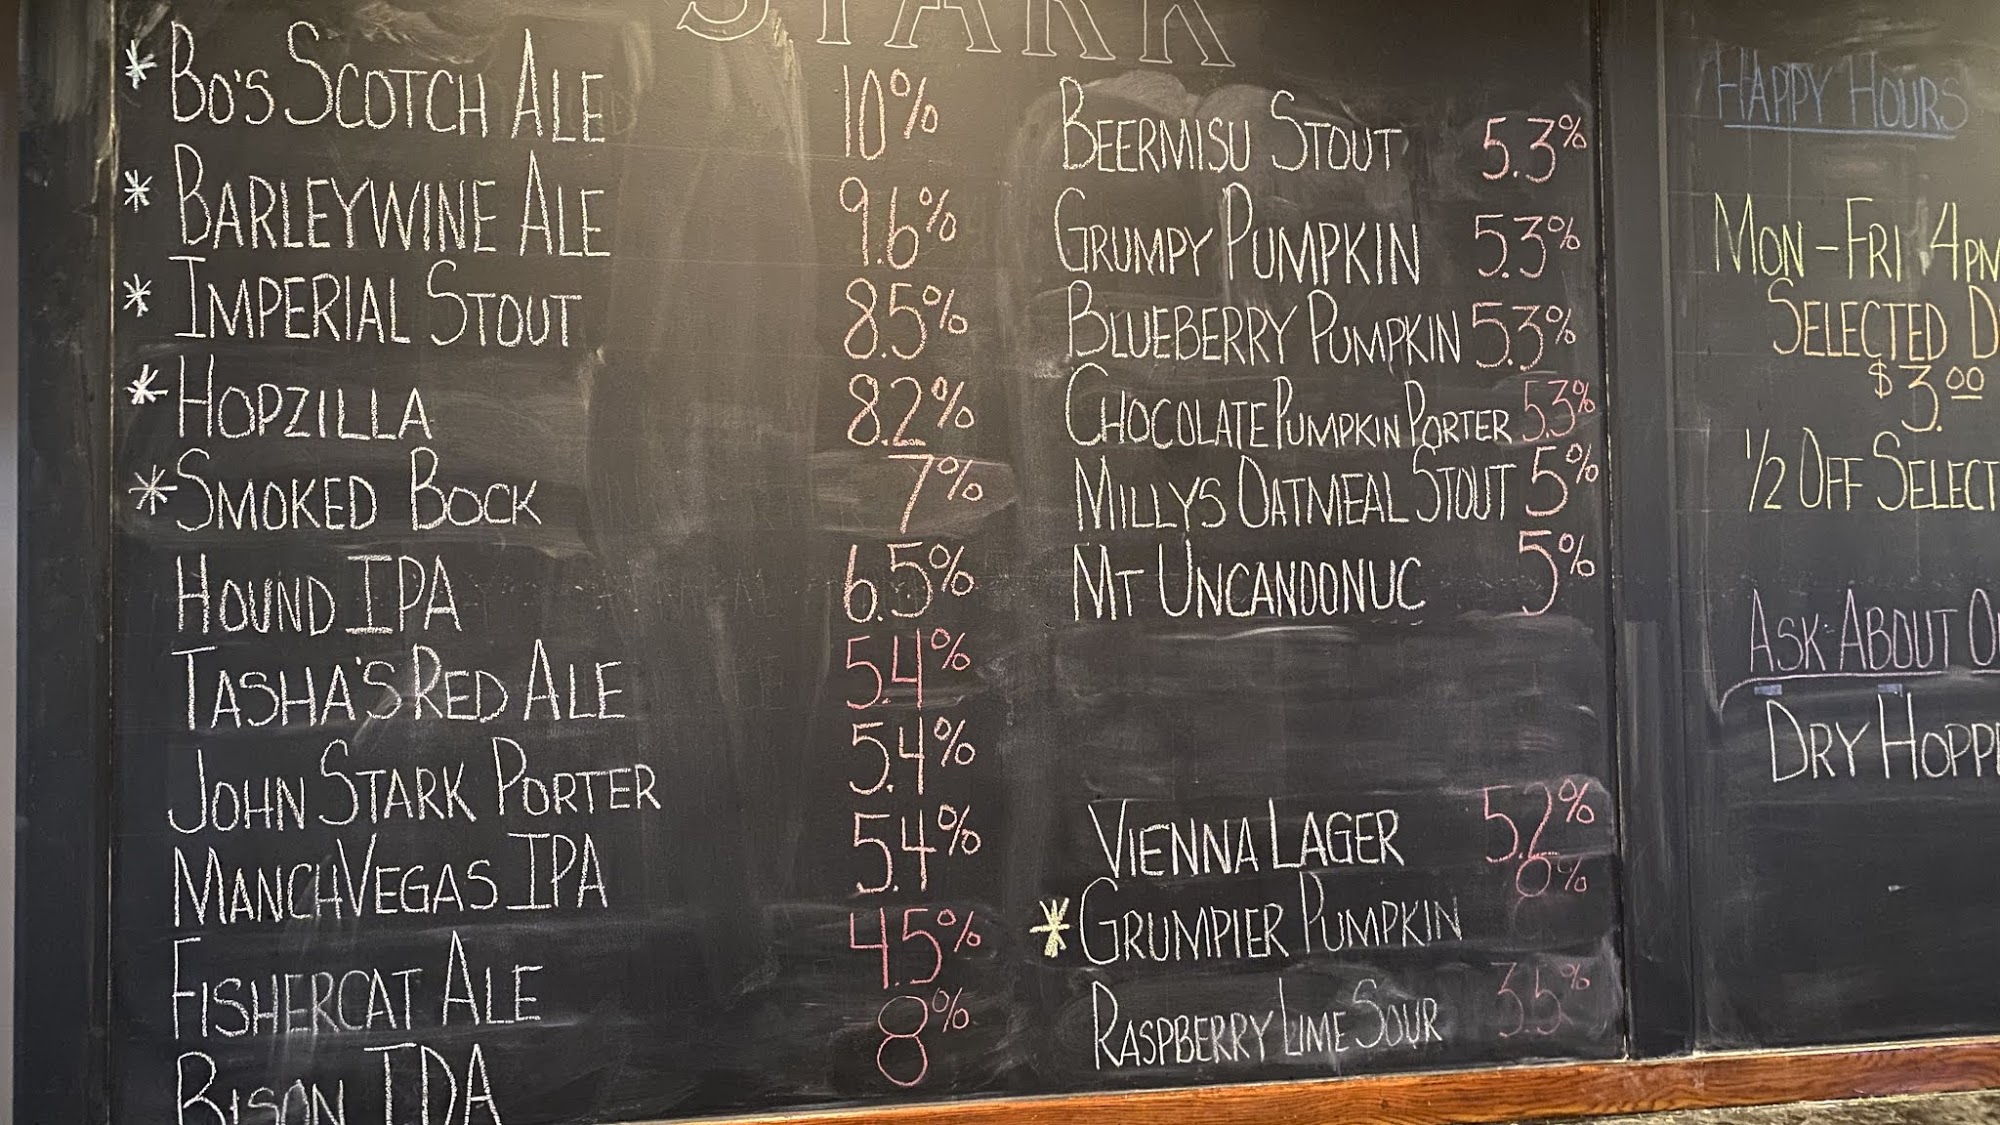 STARK
* BO'S SCOTCH ALE 10%
* BARLEYWINE ALE 9.6%
* IMPERIAL STOUT 8.5%
* HOPZILLA 8.2%
* SMOKED BOCK 7%
HOUND IPA 6.5%
TASHA'S RED ALE 5.4%
JOHN STARK PORTER 5.4%
MANCHVEGAS IPA 5.4%
FISHERCAT ALE 4.5%
BISON IPA 8%
BEERMISU STOUT 5.3%
GRUMPY PUMPKIN 5.3%
BLUEBERRY PUMPKIN 5.3%
CHOCOLATE PUMPKIN PORTER 5.3%
MILLYS OATMEAL STOUT 5%
MT UNCANOONUC 5%
VIENNA LAGER 5.2%
* GRUMPIER PUMPKIN 8%
RASPBERRY LIME SOUR 3.5%
HAPPY HOURS
MON-FRI 4PM
SELECTED D
$3.00
1/2 OFF SELECT
ASK ABOUT O
DRY HOPP